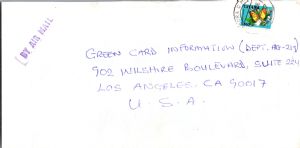 BY AIR MAIL
GREEN CARD INFORMATION (DEPT.
902 WILSHIRE BOULEVARD, SUITE
LOS ANGELES. CA 90017
U. S. A.